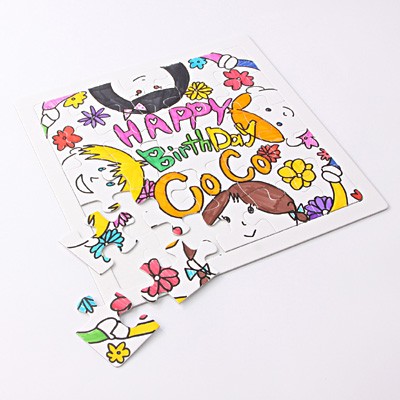 HAPPY
BirthDay
CoCo